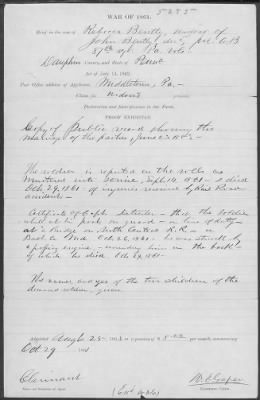 WAR OF 1861.
5285
Brief in the case of Rebecca Bently, widow of
John Bently, dec'd, Co. B
87th Regt. Pa. Vols.
Dauphin County, and State of Penna
Act of July 14, 1862.
Post Office address of Applicant: Middletown, Pa.
Claim for widow's pension
Declaration and Identification in due Form.
PROOF EXHIBITED.
Copy of Public record showing the
marriage of the parties, June
The soldier is reported on the rolls as
mustered into service, Sept 14, 1861 & died
Oct 29, 1861 of injuries received by Rail Road
accident.
Certificate of Capt. that the soldier
whilst at his post on guard in line of duty
at a bridge on North Central R.R. in
Md. Oct 26, 1861. he was struck by
a passing engine wounding him in the back
of which he died Oct 29, 1861
No names or ages of the children of the
deceased soldier given.
Admitted Aug 25, 186 to a pension of $ 8.00 per month, commencing
Oct 29 1861.
Claimant
Name and Residence of Agent.
Examining Clerk.